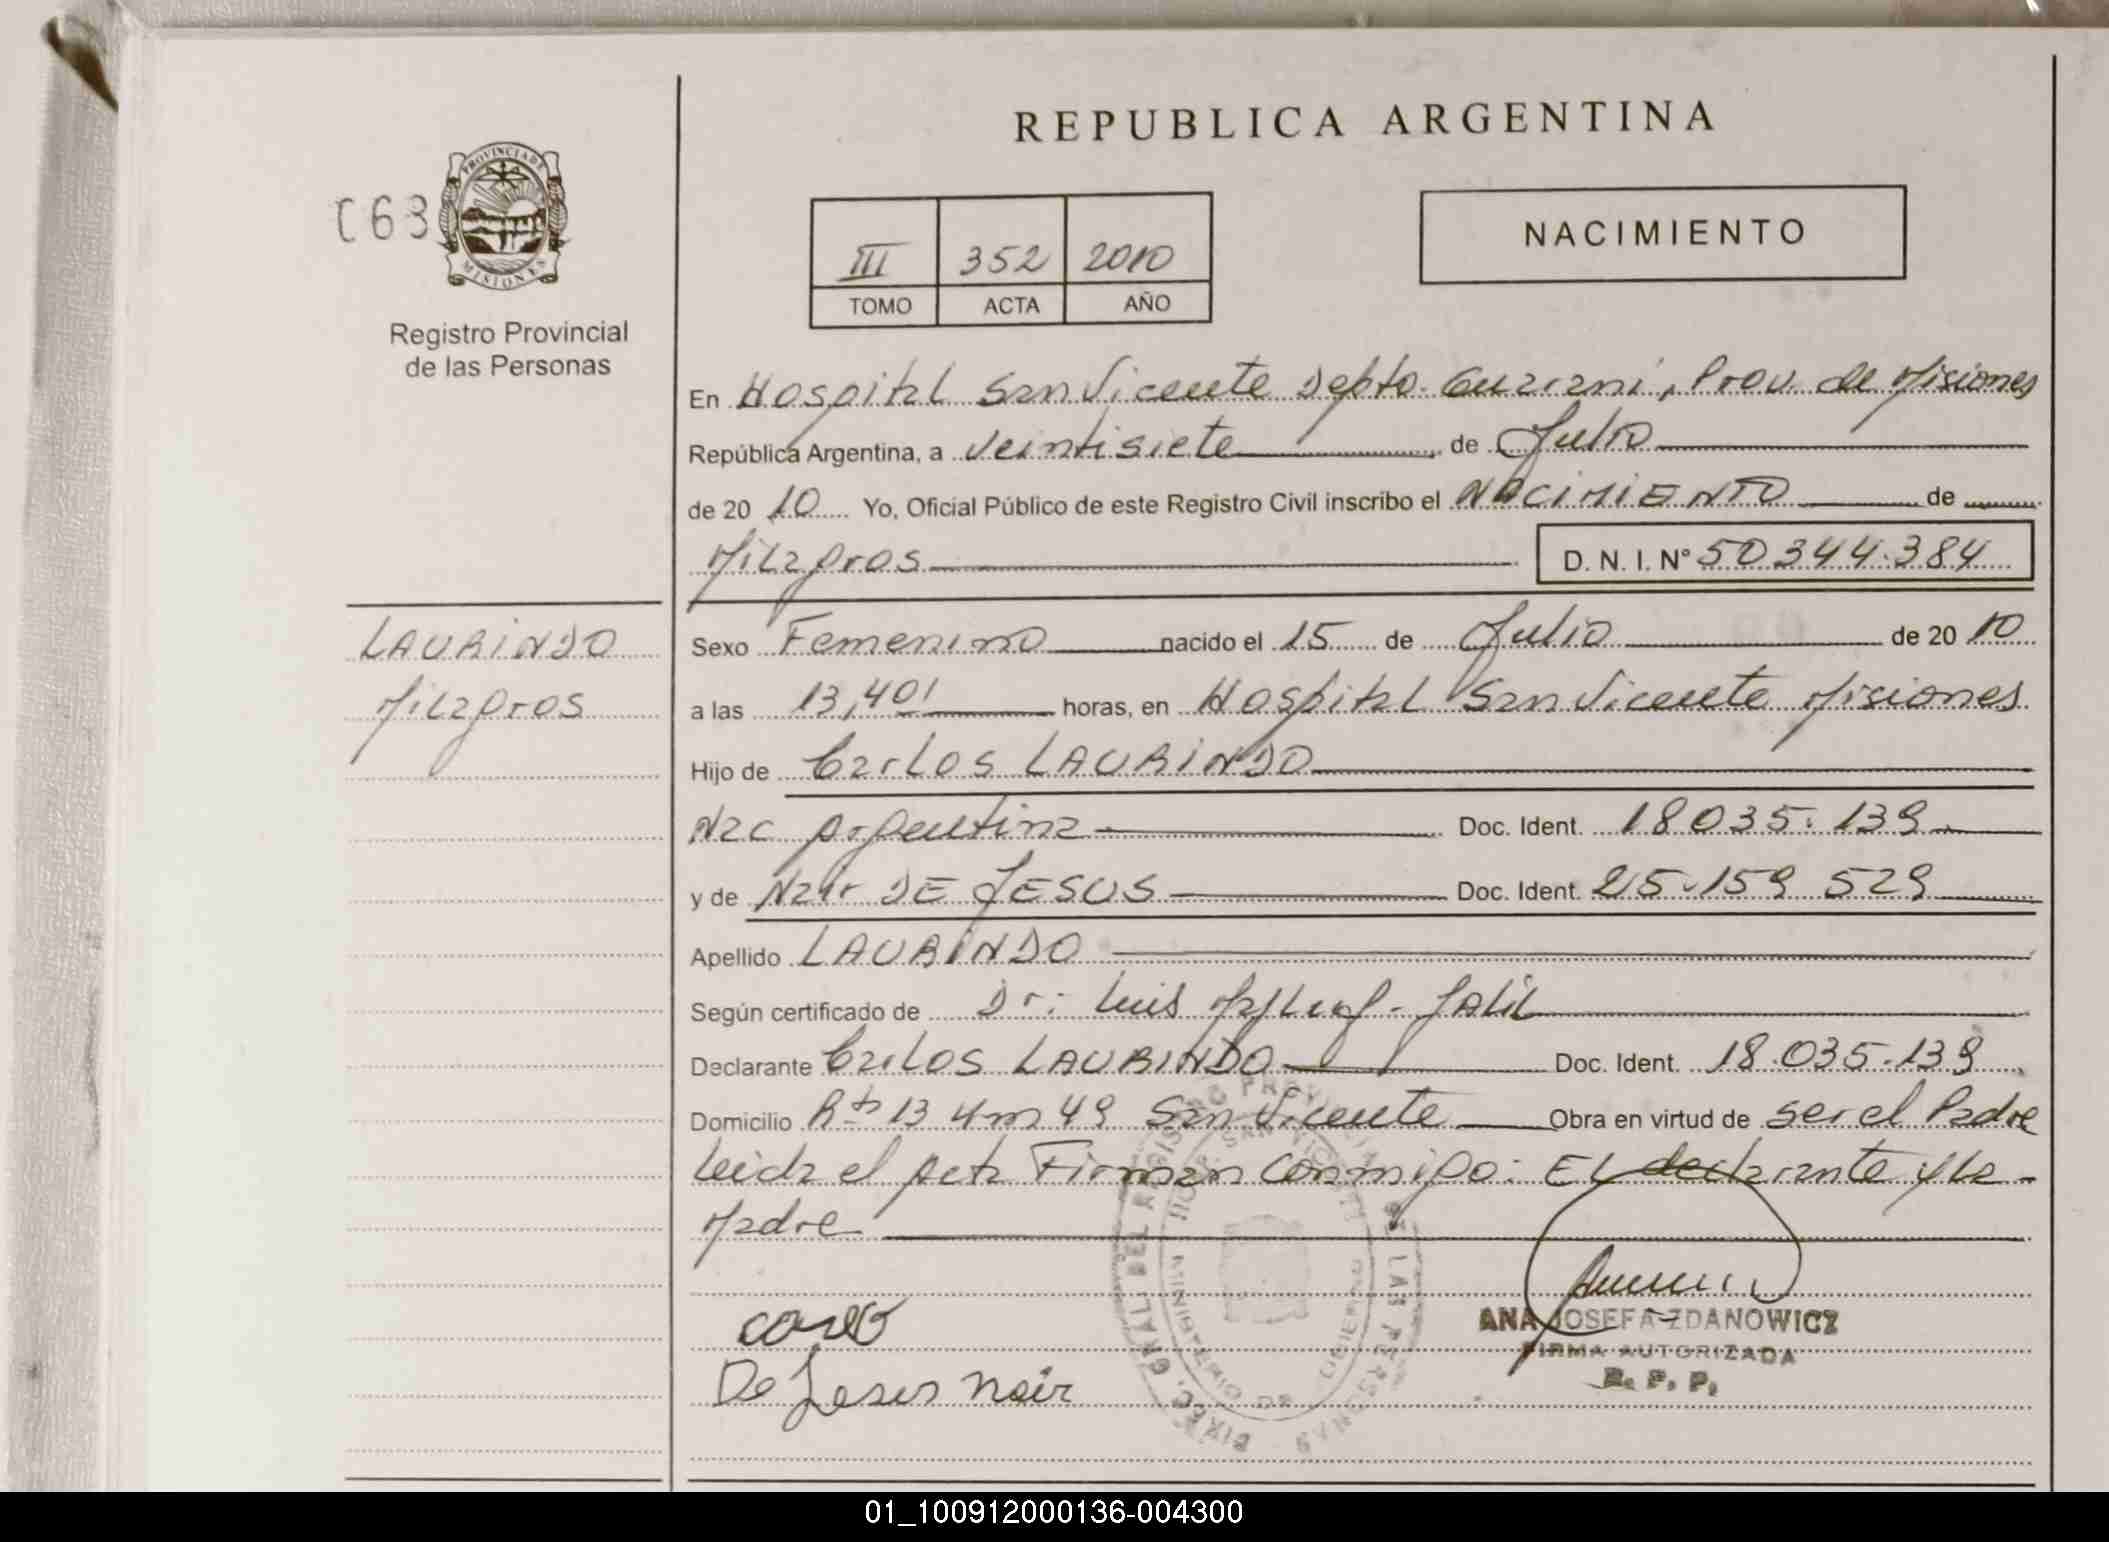 REPUBLICA ARGENTINA
C63
PROVINCIA DE
MISIONES
Registro Provincial
de las Personas
III 352 2010
TOMO ACTA AÑO
NACIMIENTO
En Hospital San Vicente Depto. Guarani, Prov. de Misiones
República Argentina, a veintisiete de Julio
de 20 10 Yo, Oficial Público de este Registro Civil inscribo el NACIMIENTO de
Milagros D. N. I. N° 50344.384
LAURINDO
Milagros
Sexo Femenino nacido el 15 de Julio de 20 10
a las 13,40' horas, en Hospital San Vicente Misiones
Hijo de Carlos LAURINDO
Nac Argentina Doc. Ident. 18 035. 139
y de Nair DE JESUS Doc. Ident. 25.159 529
Apellido LAURINDO
Según certificado de Dr: Luis Jalil
Declarante Carlos LAURINDO Doc. Ident. 18.035.139
Domicilio Rta 13 Km 49 San Vicente Obra en virtud de ser el Padre
Leida el Acta Firman Conmigo: EL declarante y la
Madre
DIREC. GRAL. DEL REGISTRO PROVINCIAL DE LAS PERSONAS
MINISTERIO DE GOBIERNO
ANA JOSEFA ZDANOWICZ
FIRMA AUTORIZADA
R. P. P.
De Jesus Nair
01_100912000136-004300